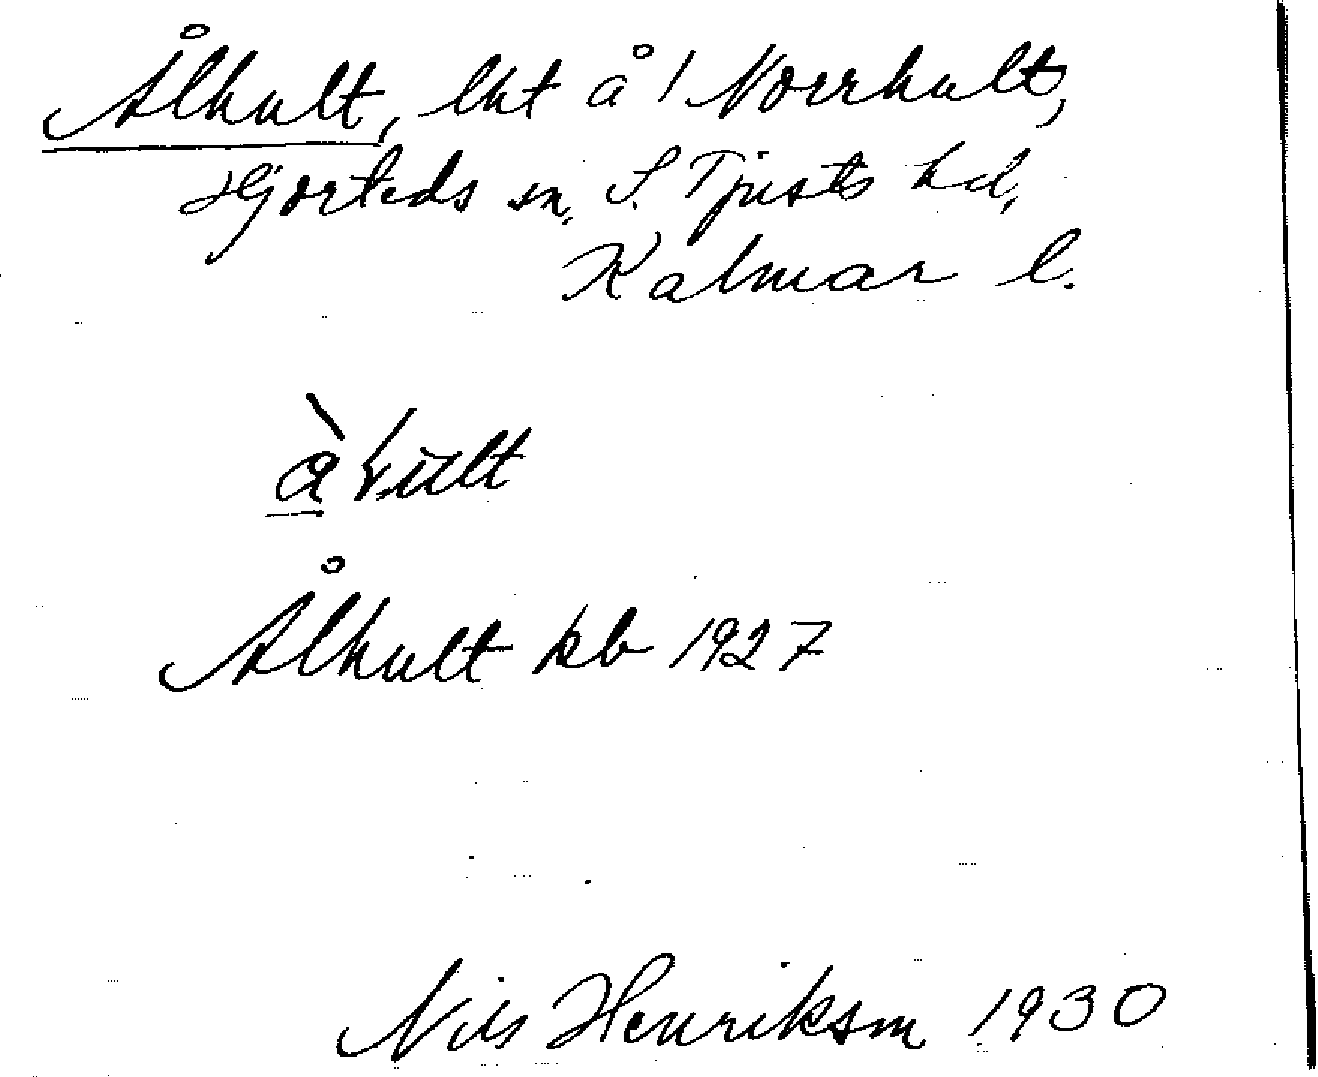 Ålhult, lht å 1 Norrhult,
Hjorteds sn, S. Tjusts hd,
Kalmar l.
Ålhult kb 1927
Nils Henrikson 1930